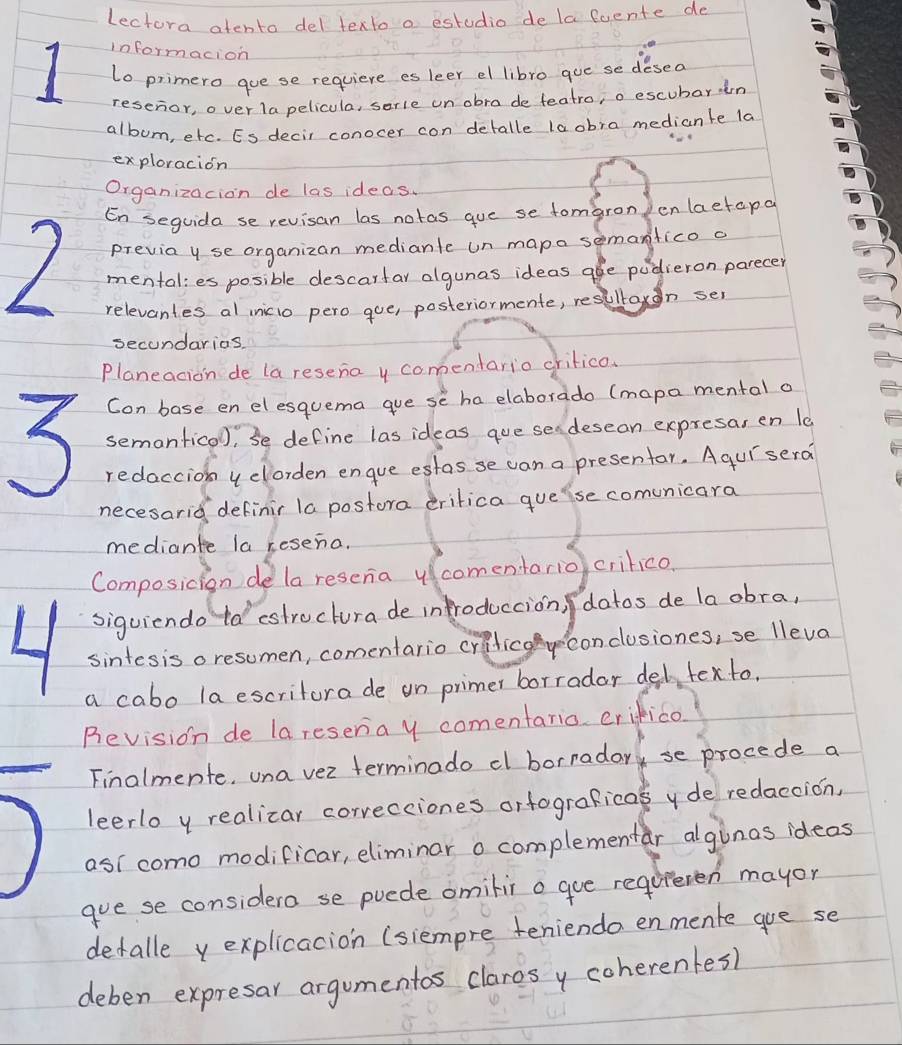 Lectura atenta del texto o estudio de la fuente de
informacion
1
Lo primero que se requiere es leer el libro que se desea
reseñar, o ver la pelicula, serie un obra de teatro, o escubar un
album, etc. Es decir conocer con detalle la obra mediante la
exploración
Organización de las ideas.
2
En seguida se revisan las notas que se tomaron en la etapa
previa y se organizan mediante un mapa semantico o
mental: es posible descartar algunas ideas que pudieron parecer
relevantes al inicio pero que, posteriormente, resultaron ser
secundarias.
Planeación de la reseña y comentario critico.
3
Con base en el esquema que se ha elaborado (mapa mental o
semantico), se define las ideas que se desean expresar en la
redaccion y el orden en que estas se van a presentar. Aquí será
necesario definir la postura critica que se comunicara
mediante la reseña.
Composicion de la reseña y comentario critico.
4
siguiendo la estructura de introducción, datos de la obra,
sintesis o resumen, comentario critico y conclusiones, se lleva
a cabo la escritura de un primer borrador del texto.
Revisión de la reseña y comentario critico
5
Finalmente. una vez terminado el borrador, se procede a
leerlo y realizar correcciones ortograficas y de redacción,
así como modificar, eliminar o complementar algunas ideas
que se considera se puede omitir o que requieren mayor
detalle y explicación (siempre teniendo en mente que se
deben expresar argumentos claros y coherentes)